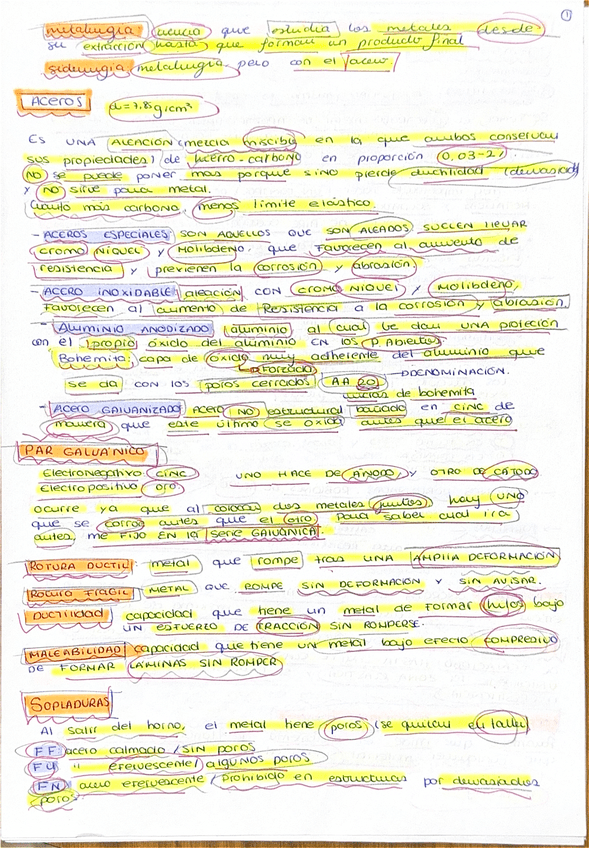 1
metalurgia: ciencia que estudia los metales desde
su extracción hasta que forman un producto final
siderurgia: metalurgia, pero con el acero
ACEROS d=7.85 g/cm³
ES UNA ALEACIÓN (mezcla miscible en la que ambos conservan
sus propiedades) de hierro-carbono en proporción 0,03-2%.
NO se puede poner mas porque sino pierde ductilidad (demasiada)
y NO sirve para metal.
Cuanto más carbono, menos límite elástico.
- ACEROS ESPECIALES SON AQUELLOS QUE SON ALEADOS SUELEN llEVAR
CROMO NIQUEL y Molibdeno. que Favorecen al aumento de
resistencia y previenen la corrosión y abrasión.
- ACERO INOXIDABLE: aleación CON CROMO NIQUEL y MOLIBDENO.
Favorecen al aumento de Resistencia a la corrosión y abrasión.
- ALUMINIO ANODIZADO (aluminio al cual le dan UNA proteción
con el propio óxido del aluminio EN los P. Abiertos.
Bohemita: capa de óxido muy adherente del aluminio que
Forzada
Se da CON los poros cerrados AA 20 DENOMINACIÓN.
micras de bohemita
- ACERO GALVANIZADO Acero NO estructural bañado en CINC de
manera que este último se oxida antes que el acero
PAR GALVÁNICO
Electronegativo: CINC UNO HACE DE ÁNODO y OTRO DE CÁTODO
Electropositivo: oro
ocurre ya que al colocar dos metales juntos hay UNO
que se corroe antes que el otro Para saber cual ira
antes, me FIJO EN la SERIE GALVÁNICA.
ROTURA DUCTIL: metal que rompe tras UNA AMPLIA DEFORMACIÓN
ROTURA FRÁGIL: METAL QUE ROMPE SIN DEFORMACIÓN Y SIN AVISAR.
DUCTILIDAD capacidad que tiene un metal de Formar hilos bajo
UN ESFUERZO DE TRACCIÓN SIN ROMPERSE.
MALEABILIDAD capacidad que tiene un metal bajo efecto COMPRESIVO
DE FORMAR LÁMINAS SIN ROMPER
SOPLADURAS
Al salir del horno, el metal tiene poros (se quitan en taller)
FF: acero calmado / SIN poros
FU " efervescente / algunos poros
FN acero efervescente / Prohibido en estructuras por demasiados
poros.